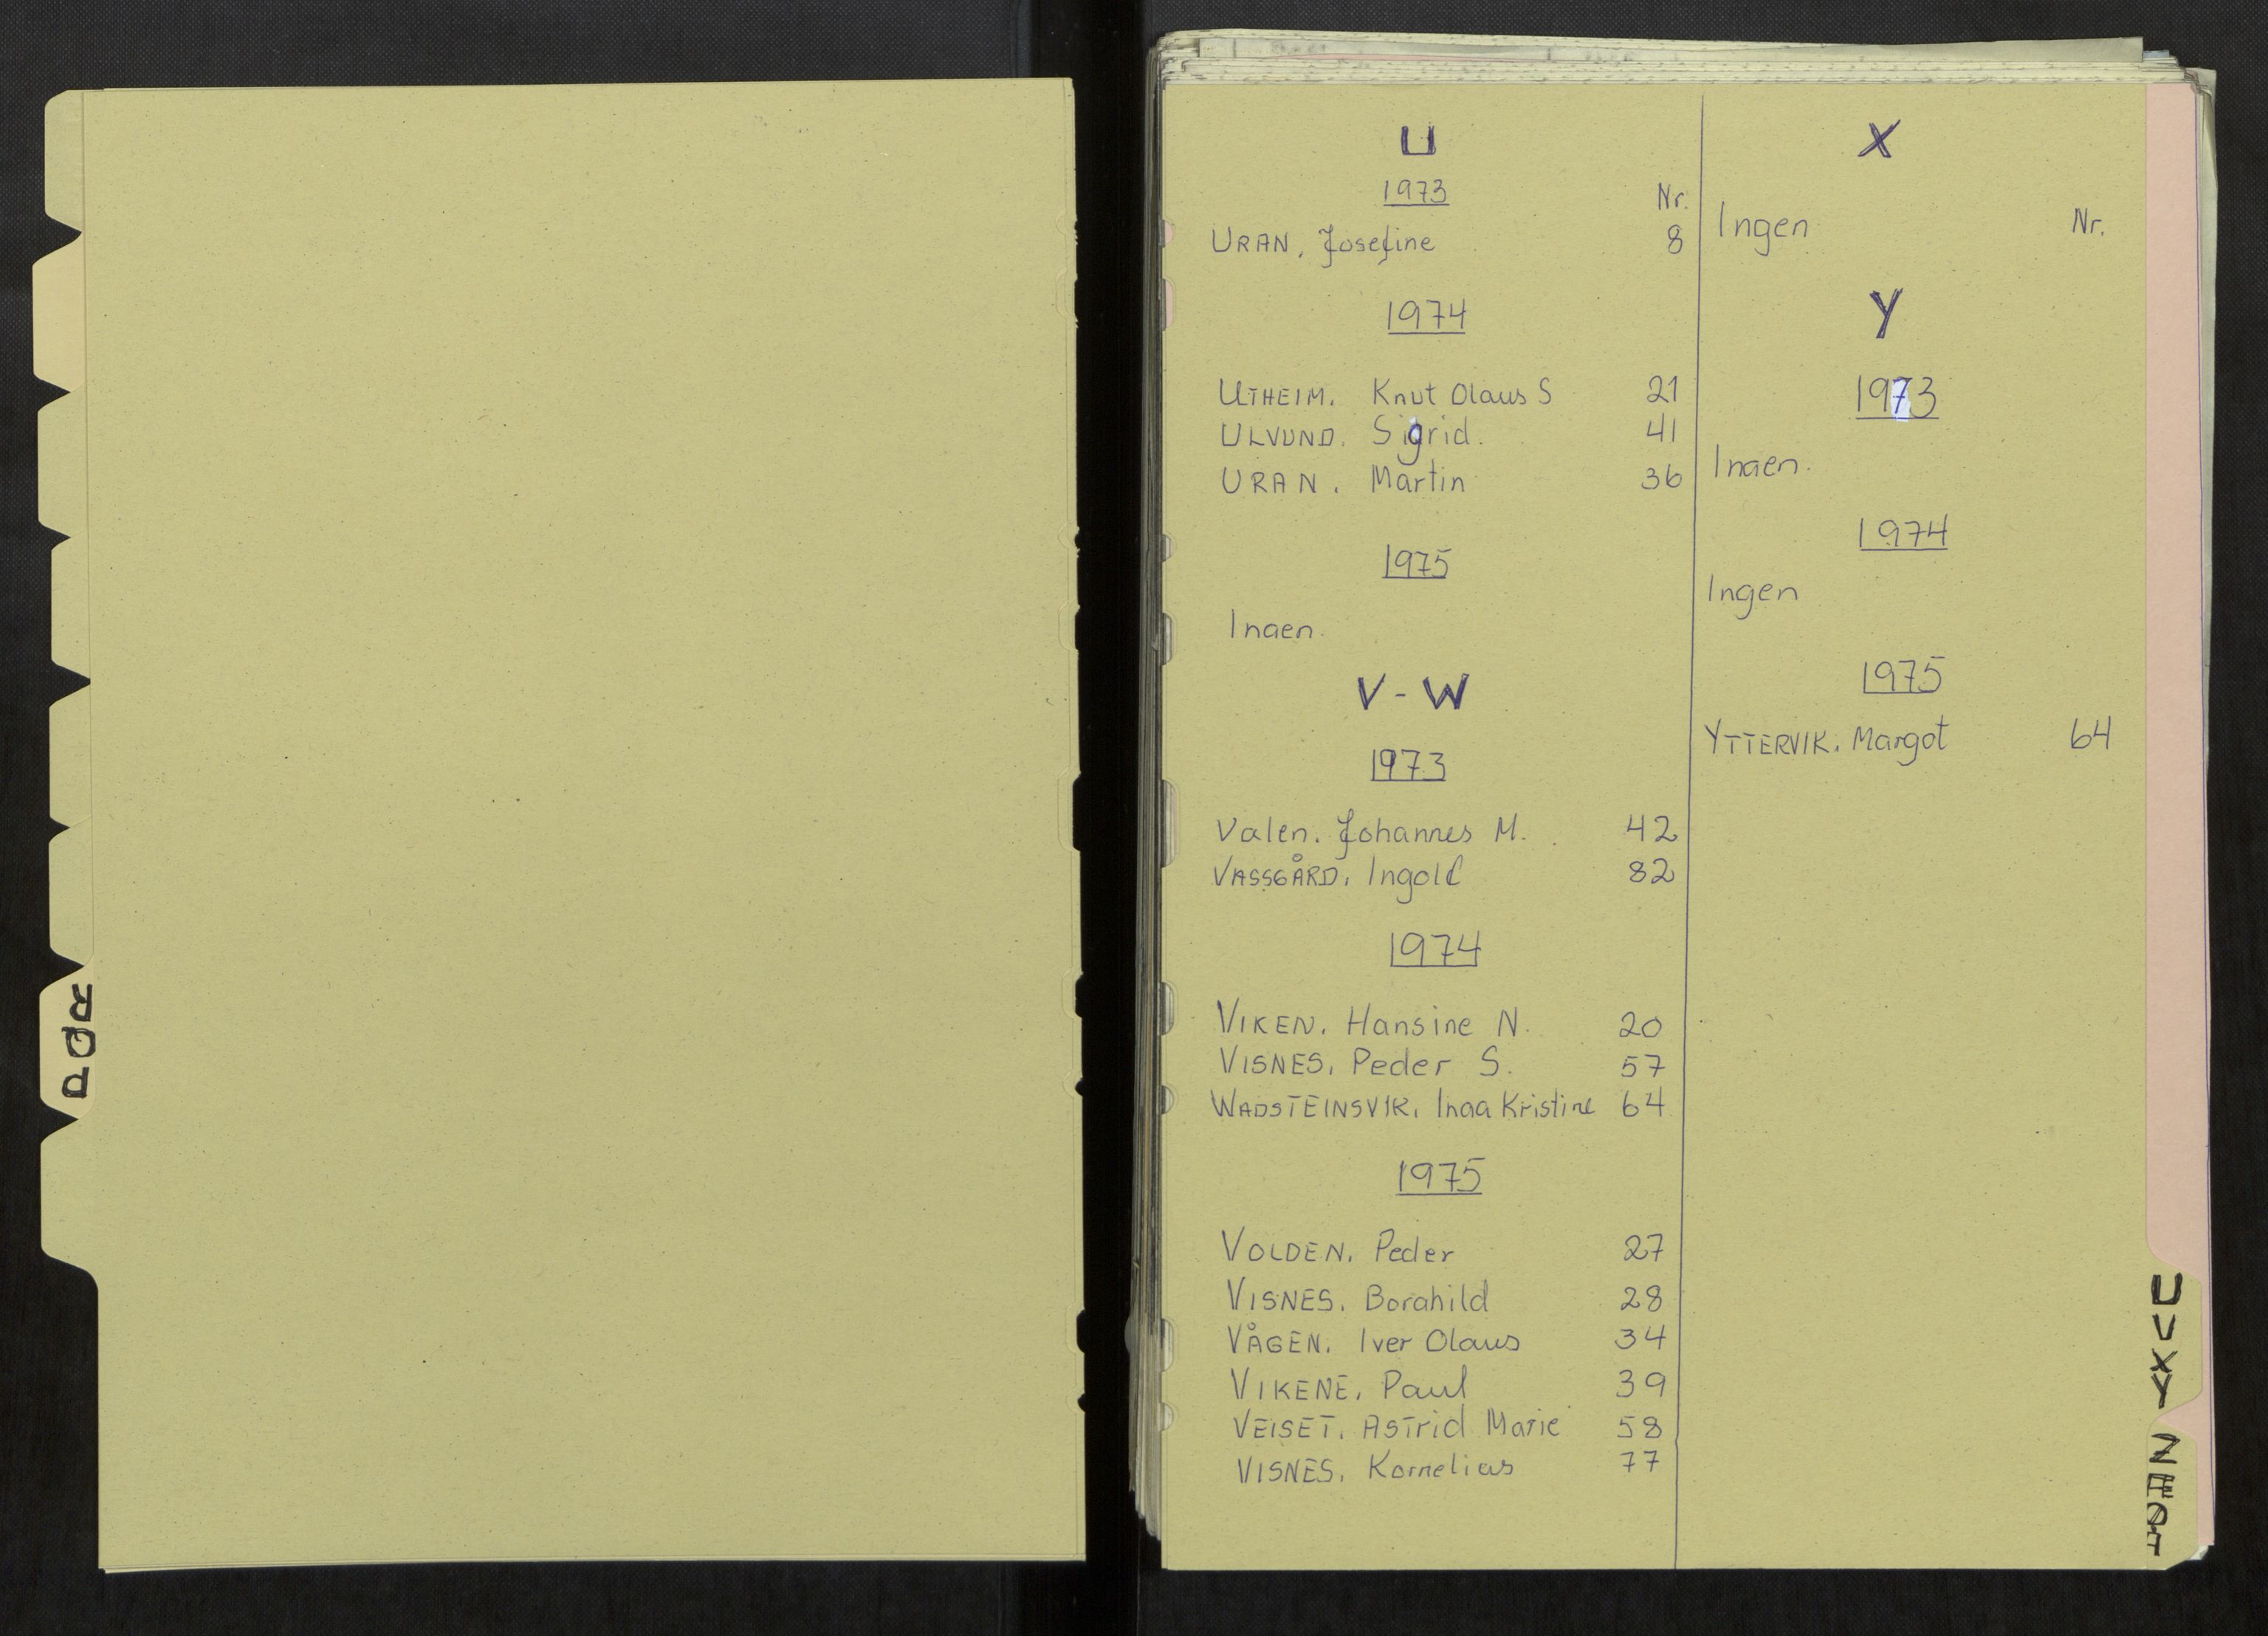 PQR
U
1973
Nr.
URAN, Josefine 8
1974
UTHEIM. Knut Olaus S 21
ULVUND. Sigrid. 41
URAN. Martin 36
1975
Ingen.
V - W
1973
Valen. Johannes M. 42
VASSGÅRD. Ingolf 82
1974
VIKEN. Hansine N. 20
VISNES. Peder S. 57
WADSTEINSVIK. Inga Kristine 64
1975
VOLDEN. Peder 27
VISNES. Borghild 28
VÅGEN. Iver Olaus 34
VIKENE. Paul 39
VEISET. Astrid Marie 58
VISNES. Kornelius 77
X
Nr.
Ingen
Y
1973
Ingen.
1974
Ingen
1975
YTTERVIK. Margot 64
U V X Y